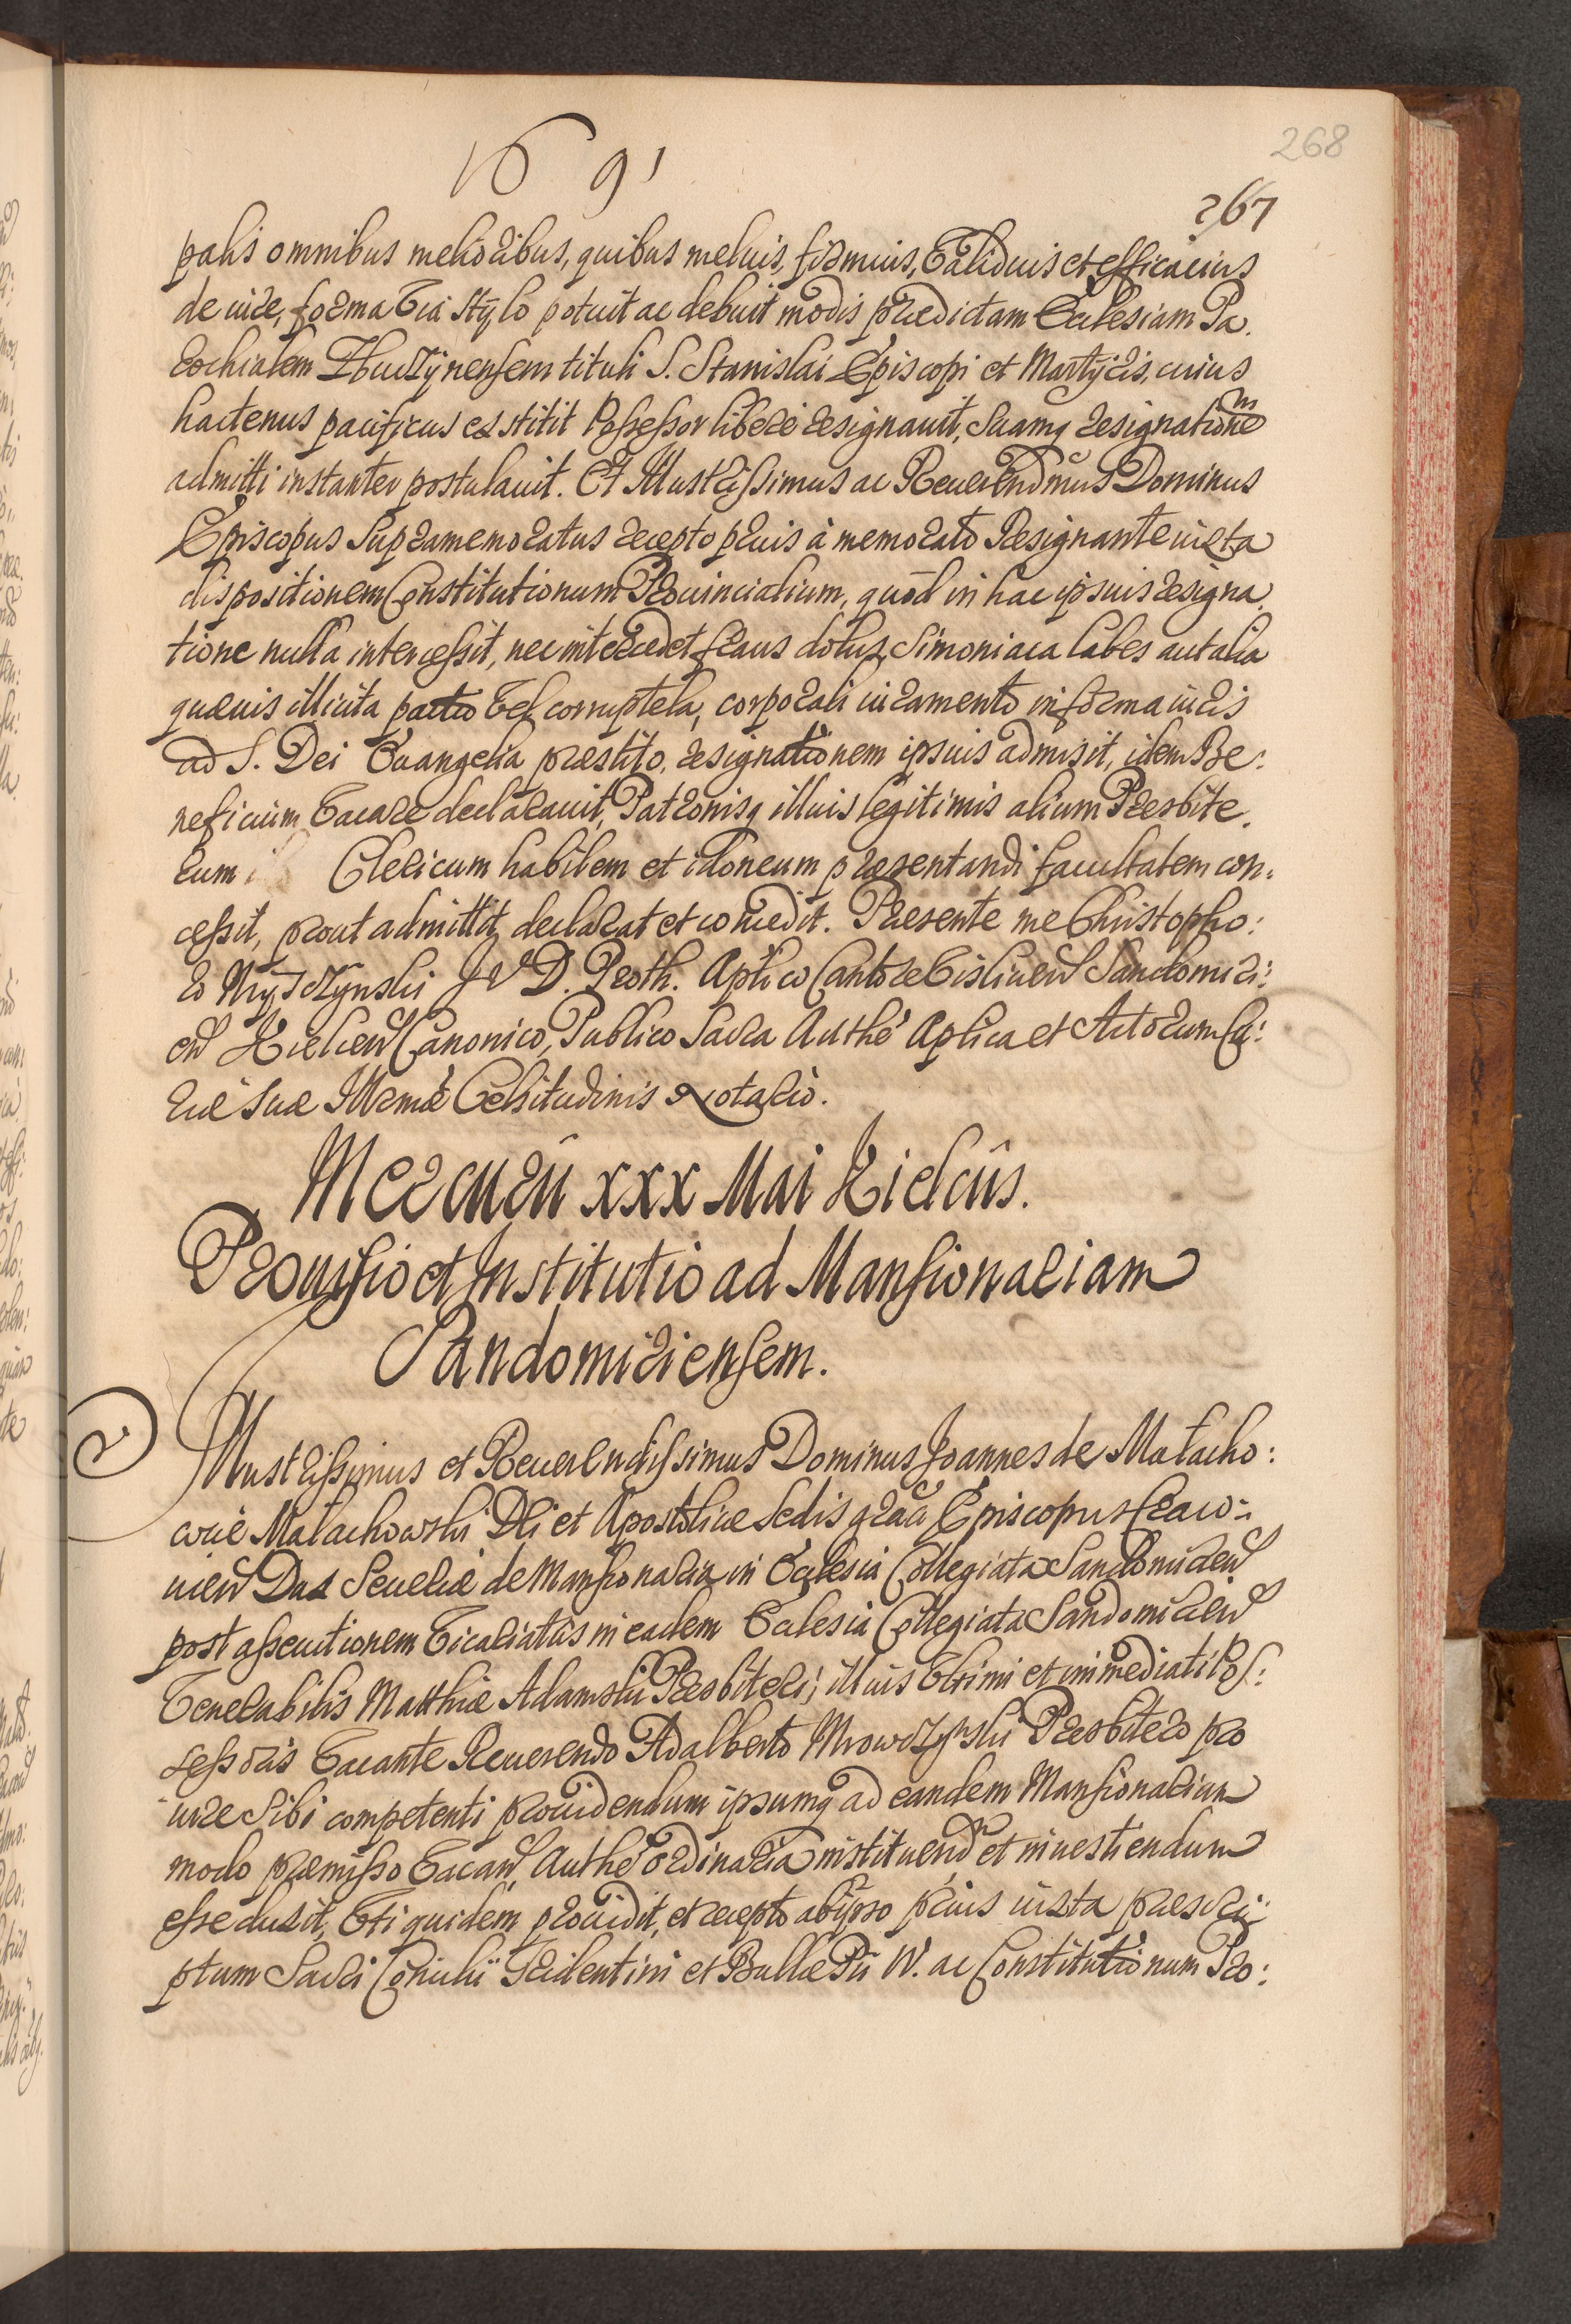 268
1691
267
palis omnibus melioribus, quibus meluis, firmius, validius et efficacius
de iure, forma via stylo potuit ac debuit modis praedictam Ecclesiam Pa.
rochialem tituli S. Stanislai Episcopi et Martyris, cuius
hactenus pacificus exstitit Possessor libere resignauit, Suamq resignationem
admitti instanter postulauit. Et Illustrissimus ac Reuerendmus Dominus
Episcopus Supramemoratus recepto prius à memorato Resignante iuxta
dispositionem Constitutionum Prouincialium, quod in hac ipsius resigna
tione nulla intercessit, nec intercedet fraus dolus, Simoniaca labes aut alia
quaeuis illicita pactio vel corruptela, corporali iuramento in forma iuris
ad S. Dei Euangelia praestito, resignationem ipsius admisit, idem Be:
neficium vacare declarauit, Patronisq illius legitimis alium Presbite.
rum Clericum habilem et idoneum praesentandi facultatem con:
cessit, prout admittit declarat et concedit. Praesente me Christopho:
ro J V D. Proth. Aplico Cantore Visliceń Sandomiri:
eń Kielceń Canonico, Publico Sacra Authe Aplica et Actorum Cu:
riae Suae Illrmae Celsitudinis Notario.
Mercurii xxx Mai Kielciis.
Prouisio et Institutio ad Mansionariam
Sandomiriensem.
2
Illustrissimus et Reuerendissimus Dominus Joannes de Malacho:
wie Malachowski Dei et Apostolicae Sedis graa Episcopus Craco:
uień Dux Seueriae de Mansionaria in Ecclesia Collegiata Sandomirień
post assecutionem Vicariatus in eadem Ecclesia Collegiata Sandomirień
Venerabilis Matthiae Adamski Presbiteri, illius vltimi et immediati Pos:
sessoris vacante Reuerendo Adalberto Mrowczynski Presbitero pro
iure Sibi competenti prouidendum ipsumq ad eandem Mansionariam
modo praemisso vacań, Authe ordinaria instituend et inuestiendum
esse duxit, vti quidem prouidit, et recepto ab ipso prius iuxta praescri:
ptum Sacri Concilii Tridentini et Bullae Pii IV. ac Constitutionum Pro: